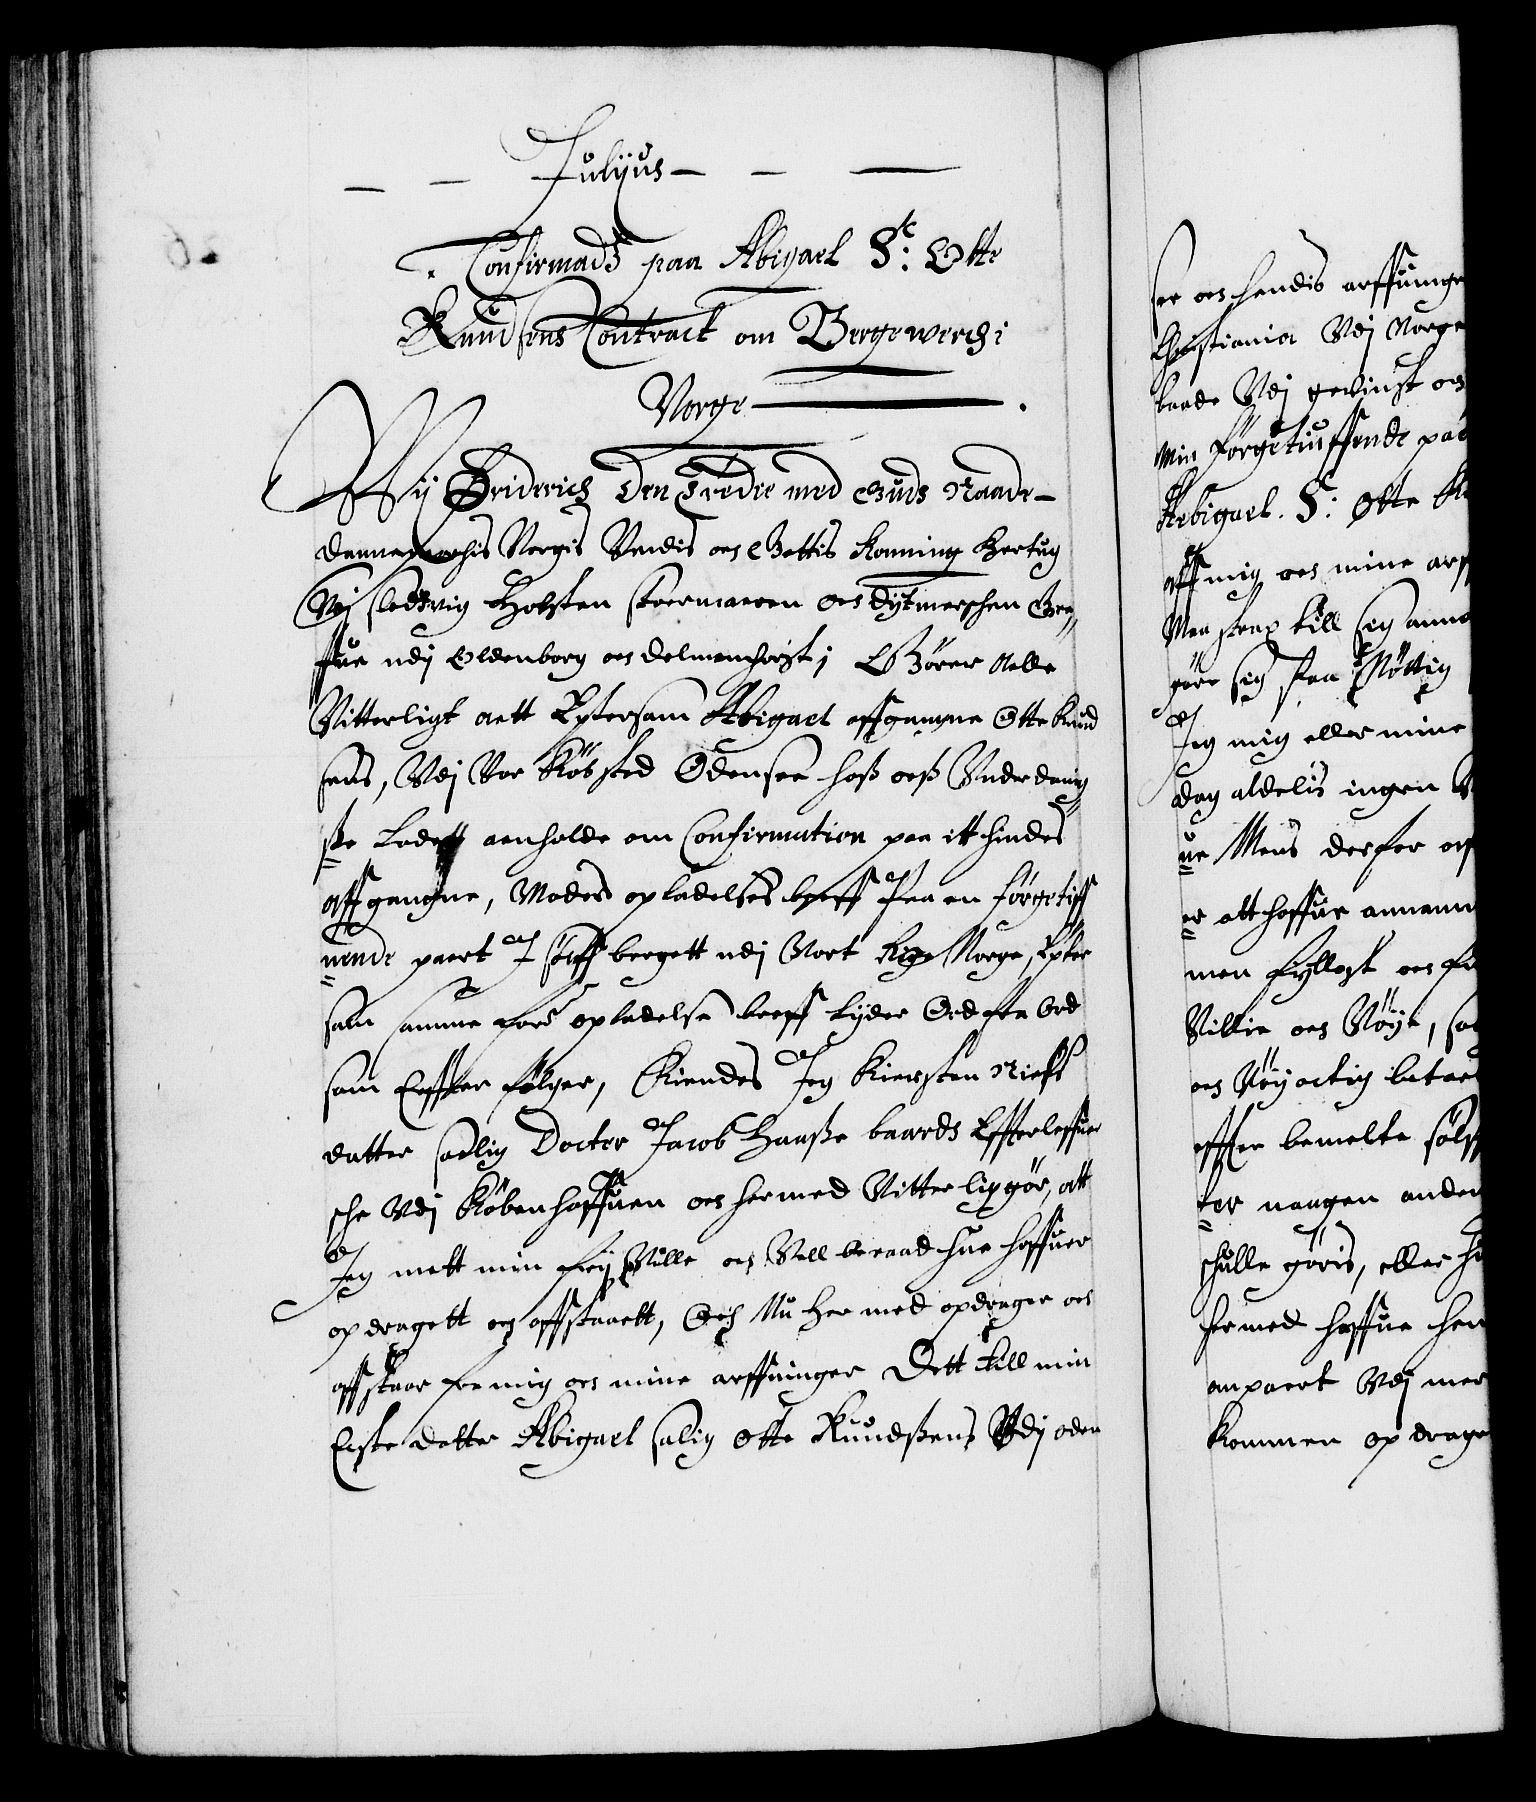 Julijus
Confirmads paa Abigael Sl: Otte
Knudsens Contract om Bergewerch i
Norge
Wij Friderich den Tredie med Guds Naade
Dannemarchis Norgis Vendis oc Gottis Konning Hertug
Vdj Sleszvig Holsten Stormaren oc Dytmerschen Gre
ffue udj Oldenborg oc Delmenhorst; Giører Alle
Vitterligt att Eptersom Abigael affgangne Otte Knud
sens, Vdj Vor Kiøbsted Odensee hoß oeß Vnderdanig
ste Ladett anholde om Confirmation paa itt hindes
affgangne, Moders opladelses breff Paa en førgetiff
uende paert I Sølffbergett udj Vort Rige Norge, Epter
som samme fors opladelse breff lyder Ord fra Ord
som Effter følger, Kiendes Jeg Kiersten Niels
datter salig Docter Jacob Haaße baards Effterleffuer
sche Vdj Kiøbenhaffuen oc hermed Vitterligt gør, att
Jeg mett min frij Ville oc Vell beraad hue haffuer
opdragett oc affstaaett, Och Nu her med opdrager oc
affstaar fra mig oc mine arffuinger Dett till min
Eiste datter Abigael salig Otte Knudßens Vdj Oden
see oc hendis arffuinge
Christiania Vdj Norge
baade Vdj gevinst oc
min førgetiuffende pa
Abigael. S: Otte K
aff mig oc mine arf
Mandskap till sig anna
gøre sig saa Nøttig
Jeg mig eller mine
dag aldelis ingen
ue Mens derfor
er att haffue annam
men fyllest oc
Villie oc Nøye,
oc Nøyachtig betae
effter bemelte sølff
ter naagen anden
schulle gøris, eller
hermed haffue hen
anpaert Vdj mer
kommen op drage